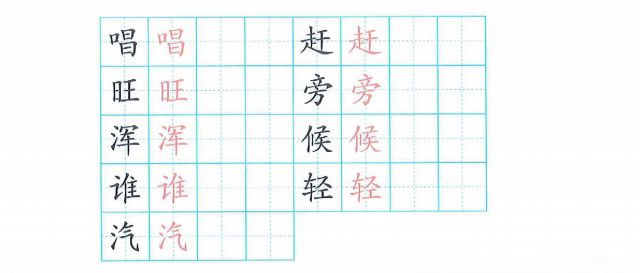 唱 唱 赶 赶
旺 旺 旁 旁
浑 浑 候 候
谁 谁 轻 轻
汽 汽